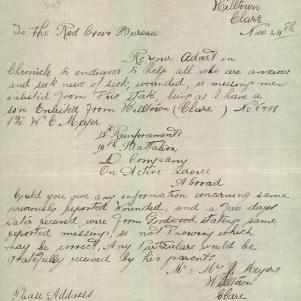 Hilltown
Clare
To the Red Cross Bureau Nov. 24th
Re your Advert in
Chronicle to endeavor to help all who are anxious
and seek news of sick, wounded, or missing men
enlisted from this State, being as I have a
son Enlisted from Hilltown (Clare) No 6798
Pte W. C. Meyer
19th Reinforcements
10th Battalion
D. Company
On Active Service
Abroad
Could you give any information concerning same
previously reported Wounded, and a few days
later received word from Goodwood stating same
reported missing, so not knowing which
may be correct. Any Particulars would be
gratefully received by his parents
Mr & Mrs J Meyers
Hilltown
Please Address Clare